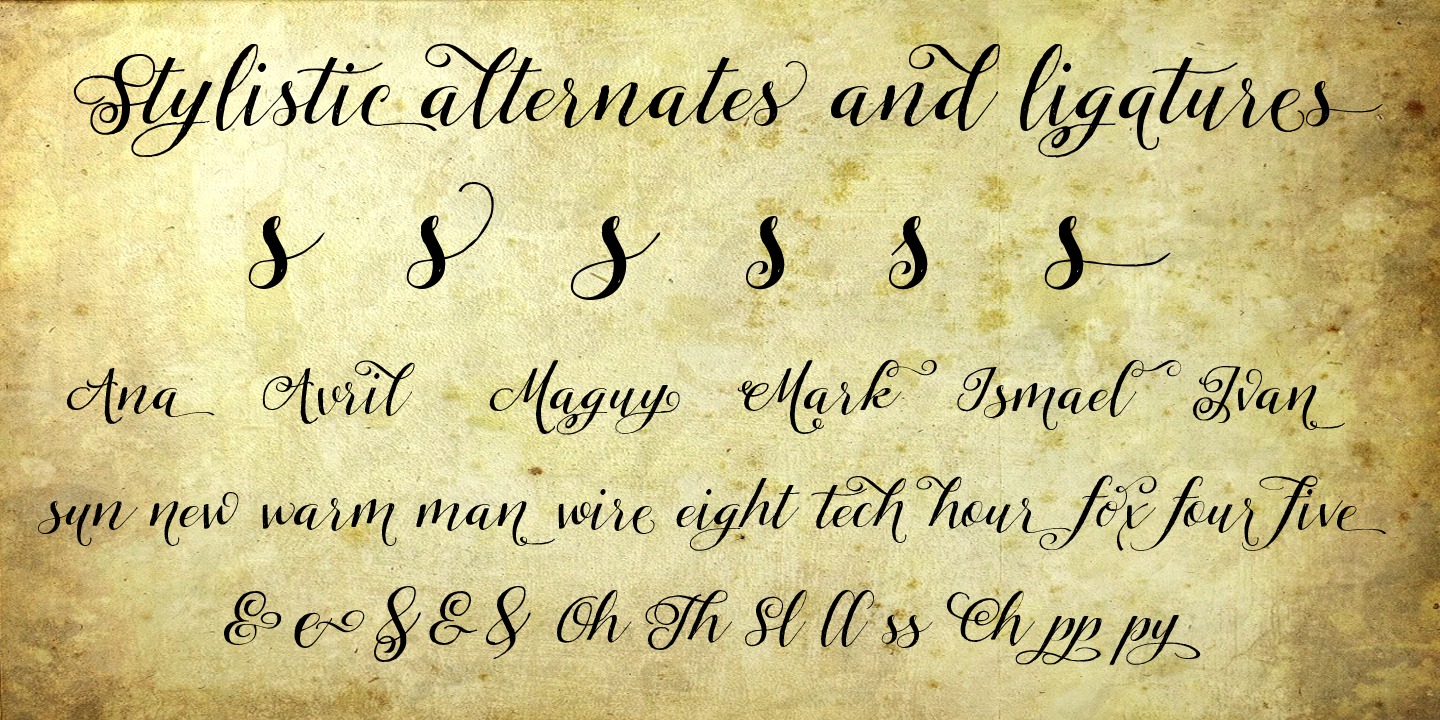 Stylistic alternates and ligatures
s s s s s s
Ana Avril Maguy Mark Ismael Ivan
sun new warm man wire eight tech hour fox four five
& & & & & Oh Th Sl ll ss Ch pp py